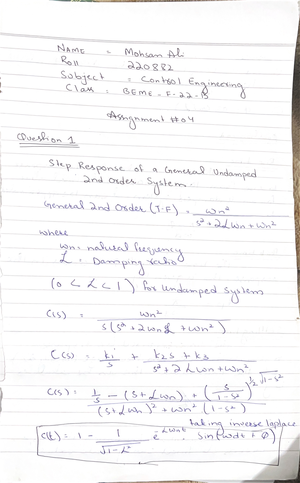 NAME = Mohsam Ali
Roll 220882
Subject = Control Engineering
Class = BEME-F-22-B
Assignment # 04
Question 1
Step Response of a General Undamped
2nd Order System.
General 2nd Order (T.F) = ωn² / s² + 2ζωn + ωn²
where
ωn = natural frequency
ζ = Damping ratio
(0 < ζ < 1) for undamped system
C(s) = ωn² / s(s² + 2ωnζ + ωn²)
C(s) = k₁/s + k₂s + k₃ / s² + 2ζωn + ωn²
C(s) = 1/s - (s + ζωn) + (s / 1-s²)^1/2 √1-s² / (s + ζωn)² + ωn² (1-s²)
taking inverse laplace
C(t) = 1 - 1/√1-ζ² e^-ζωnt . Sin(ωdt + φ)